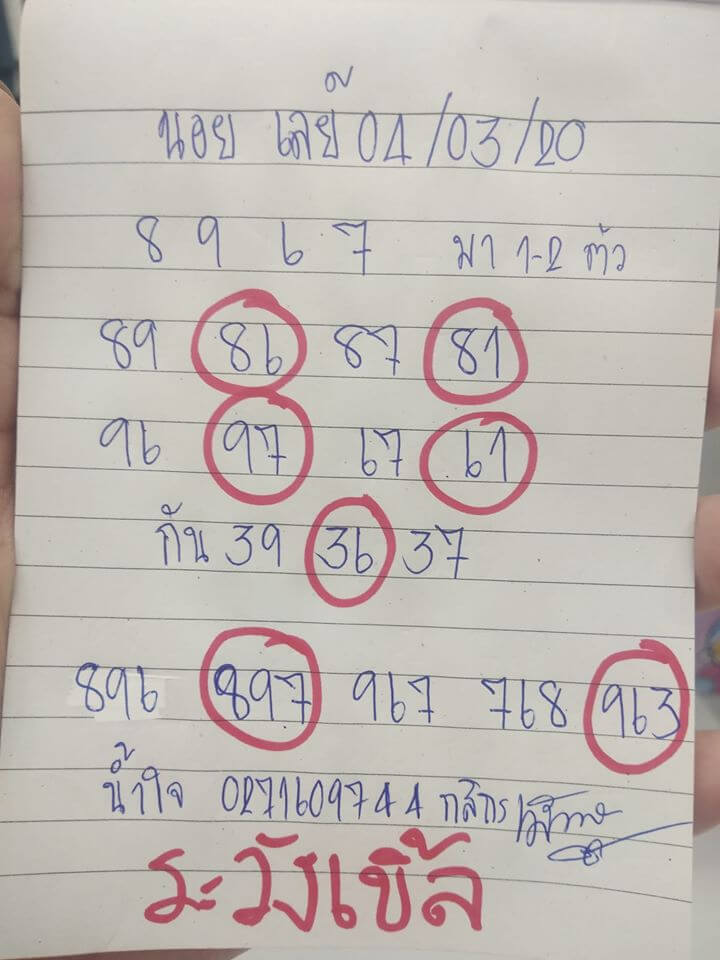 นอย เลย์ 04/03/20
8 9 6 7 มา 1-2 ตัว
89 86 87 81
96 97 67 61
กัน 39 36 37
896 897 967 768 963
น้ำใจ 0271609744 กสิกร
ระวังเบิ้ล